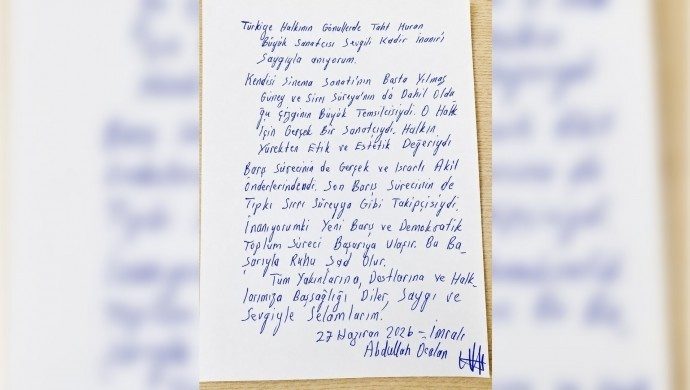 Türkiye Halkının Gönüllerde Taht Kuran
Büyük Sanatçısı Sevgili Kadir İnanır'ı
Saygıyla anıyorum.
Kendisi Sinema Sanatı'nın Başta Yılmaz
Güney ve Sırrı Süreyya'nın da Dahil Oldu
ğu Çizginin Büyük Temsilcisiydi. O Halk
İçin Gerçek Bir Sanatçıydı. Halkın
Yürekten Etik ve Estetik Değeriydi
Barış Sürecinin de Gerçek ve Israrlı Akil
Önderlerindendi. Son Barış Sürecinin de
Tıpkı Sırrı Süreyya Gibi Takipçisiydi.
İnanıyorumki Yeni Barış ve Demokratik
Toplum Süreci Başarıya Ulaşır. Bu Ba-
şarıyla Ruhu Şad Olur.
Tüm Yakınlarına, Dostlarına ve Halk-
larımıza Başsağlığı Diler, Saygı ve
Sevgiyle Selamlarım.
27 Haziran 2026 - İmralı
Abdullah Öcalan